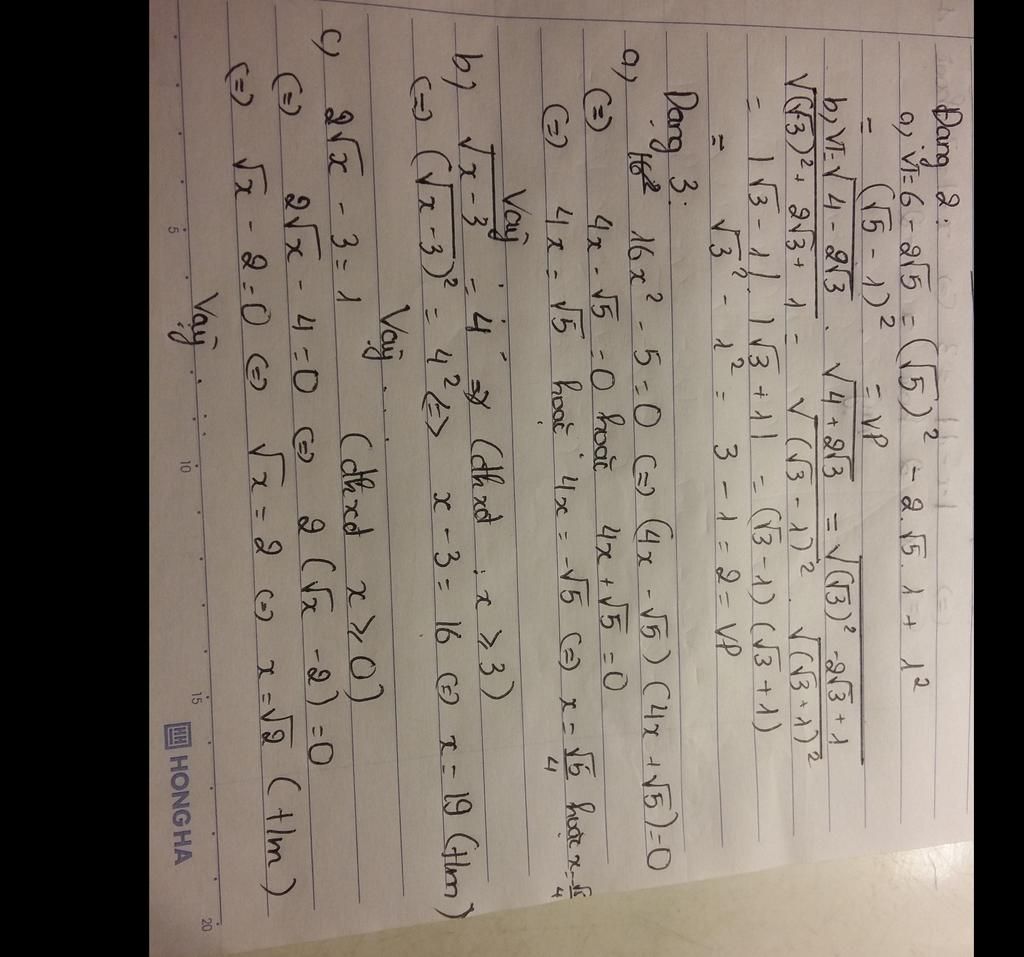 Dạng 2:
a, VT = 6 - 2√5 = (√5)² - 2.√5.1 + 1²
= (√5 - 1)² = VP
b, VT = √(4 - 2√3) . √(4 + 2√3) = √((√3)² - 2√3 + 1) .
√((√3)² + 2√3 + 1) = √((√3 - 1)²) . √((√3 + 1)²)
= |√3 - 1| . |√3 + 1| = (√3 - 1)(√3 + 1)
= √3² - 1² = 3 - 1 = 2 = VP
Dạng 3:
a, 16x² - 5 = 0 (=) (4x - √5)(4x + √5) = 0
(=) 4x - √5 = 0 hoặc 4x + √5 = 0
(=) 4x = √5 hoặc 4x = -√5 (=) x = √5/4 hoặc x = -√5/4
Vậy
b, √(x - 3) = 4 (đkxđ : x ≥ 3)
(=) (√(x - 3))² = 4² (=) x - 3 = 16 (=) x = 19 (t/m)
Vậy...
c, 2√x - 3 = 1 (đkxđ x ≥ 0)
(=) 2√x - 4 = 0 (=) 2(√x - 2) = 0
(=) √x - 2 = 0 (=) √x = 2 (=) x = √2 (t/m)
Vậy
5 10 15 20
HH HONG HA